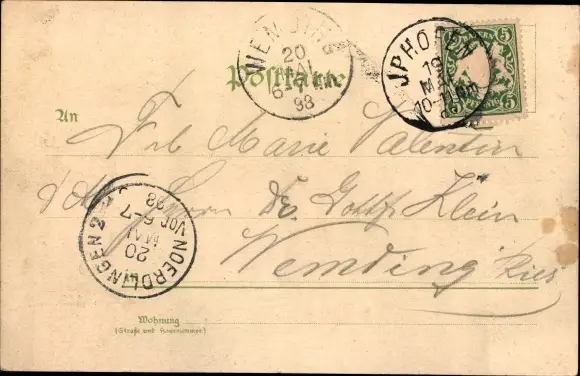 WEMDING
20
MAI
6-7
98
JPHOFEN
19
MAI
10-11
5 5
Postkarte
An
Frl Marie Valentin
d. Adr. Herrn Dr. Gottfr Klein
Wemding Ries
NOERDLINGEN 2
20
MAI
VOR 6-7
98
Wohnung
(Straße und Hausnummer)